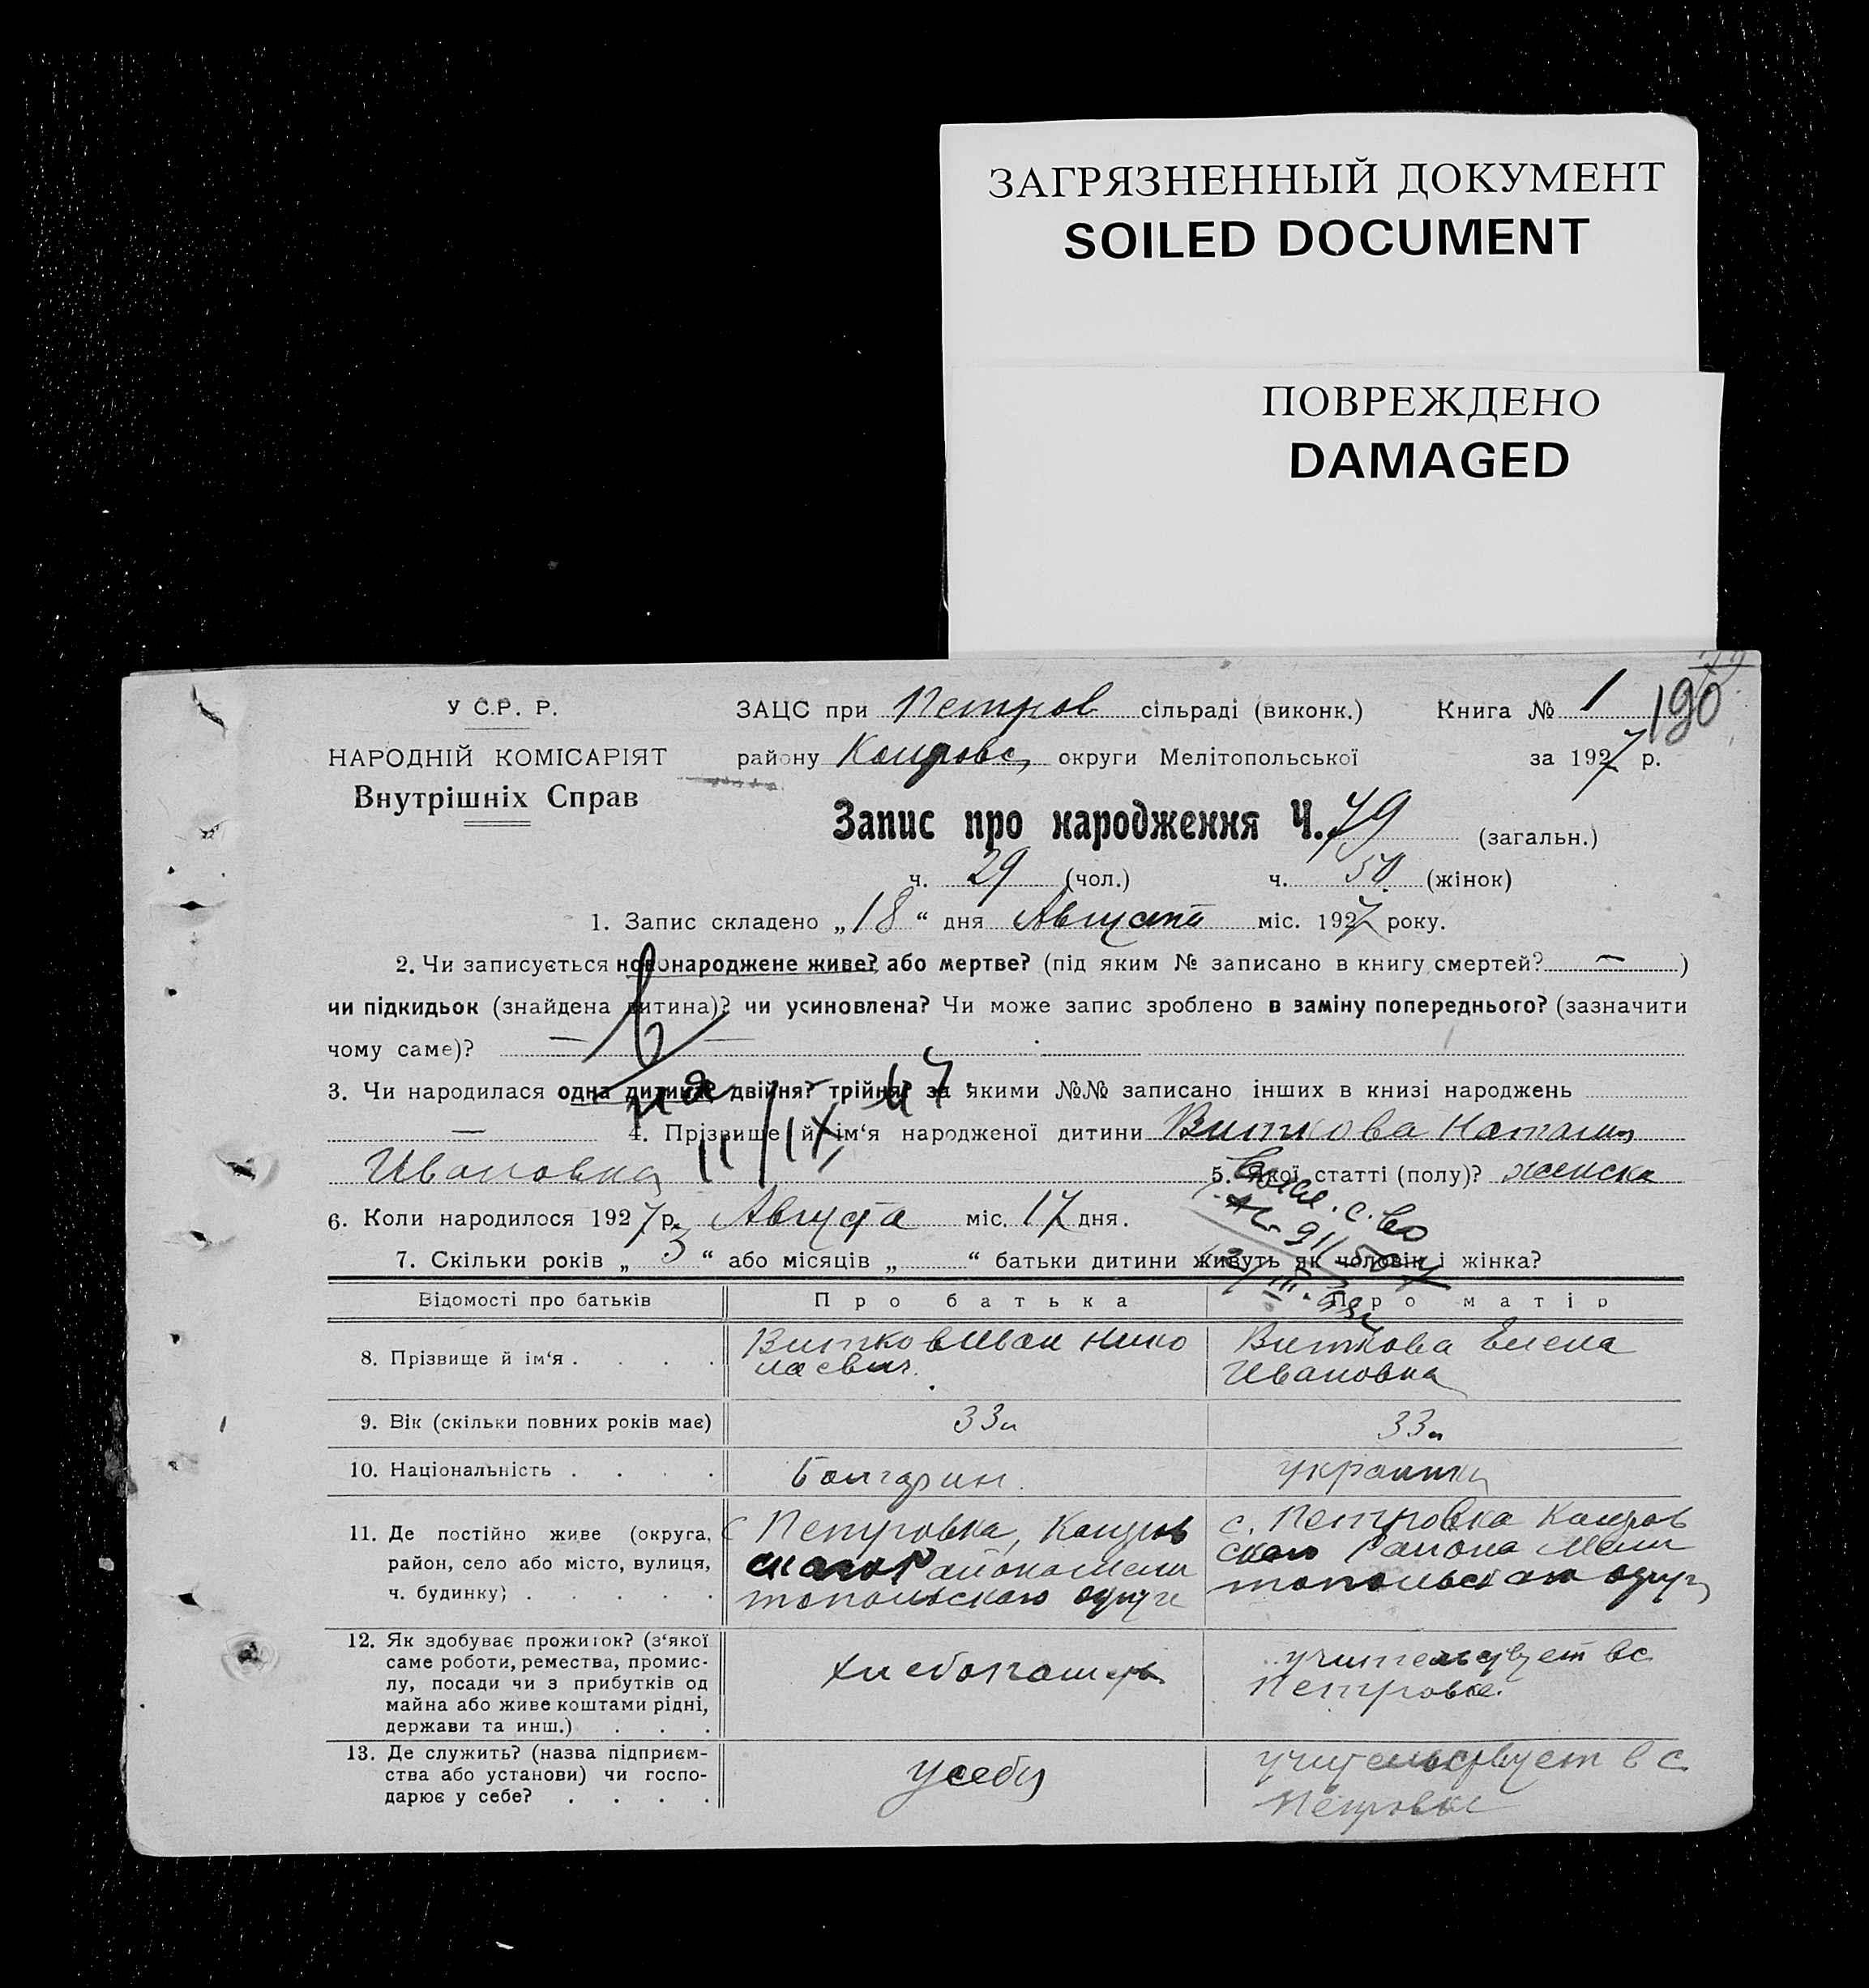 ЗАГРЯЗНЕННЫЙ ДОКУМЕНТ
SOILED DOCUMENT
ПОВРЕЖДЕНО
DAMAGED
190
У С.Р. Р.
НАРОДНІЙ КОМІСАРІЯТ
Внутрішніх Справ
ЗАЦС при Петров сільраді (виконк.) Книга № 1
району округи Мелітопольської за 1927 р.
Запис про народження Ч. 79 (загальн.)
ч. 29 (чол.) ч. 50 (жінок)
1. Запис складено „18“ дня Августа міс. 1927 року.
2. Чи записується новонароджене живе? або мертве? (під яким № записано в книгу смертей? — )
чи підкидьок (знайдена дитина)? чи усиновлена? Чи може запис зроблено в заміну попереднього? (зазначити
чому саме)? — —
3. Чи народилася одна дитина? двійня? трійня? за якими №№ записано інших в книзі народжень
— 4. Прізвище й ім‘я народженої дитини Виткова Наталия
Ивановна 5. Якої статті (полу)? женска
6. Коли народилося 1927 р. Августа міс. 17 дня.
7. Скільки років „3“ або місяців „ “ батьки дитини живуть як чоловік і жінка?
Відомості про батьків Про батька Про матір
8. Прізвище й ім‘я . . . . Витков Иван Нико
лаевич.
Виткова Елена
Ивановна
9. Вік (скільки повних років має) 33 л 33 л
10. Національність . . . . Болгарин. украинка
11. Де постійно живе (округа,
район, село або місто, вулиця,
ч. будинку) . . . . .
с Петровка,
района Мели
топольскаго округа
с. Петровка
скаго района Мели
топольскаго округа
12. Як здобуває прожиток? (з‘якої
саме роботи, ремества, промис-
лу, посади чи з прибутків од
майна або живе коштами рідні,
держави та инш.) . . .
хлебопашец
учительствует в с.
Петровке.
13. Де служить? (назва підприєм-
ства або установи) чи госпо-
дарює у себе? . . . .
у себя
учительствует в с
Петровке